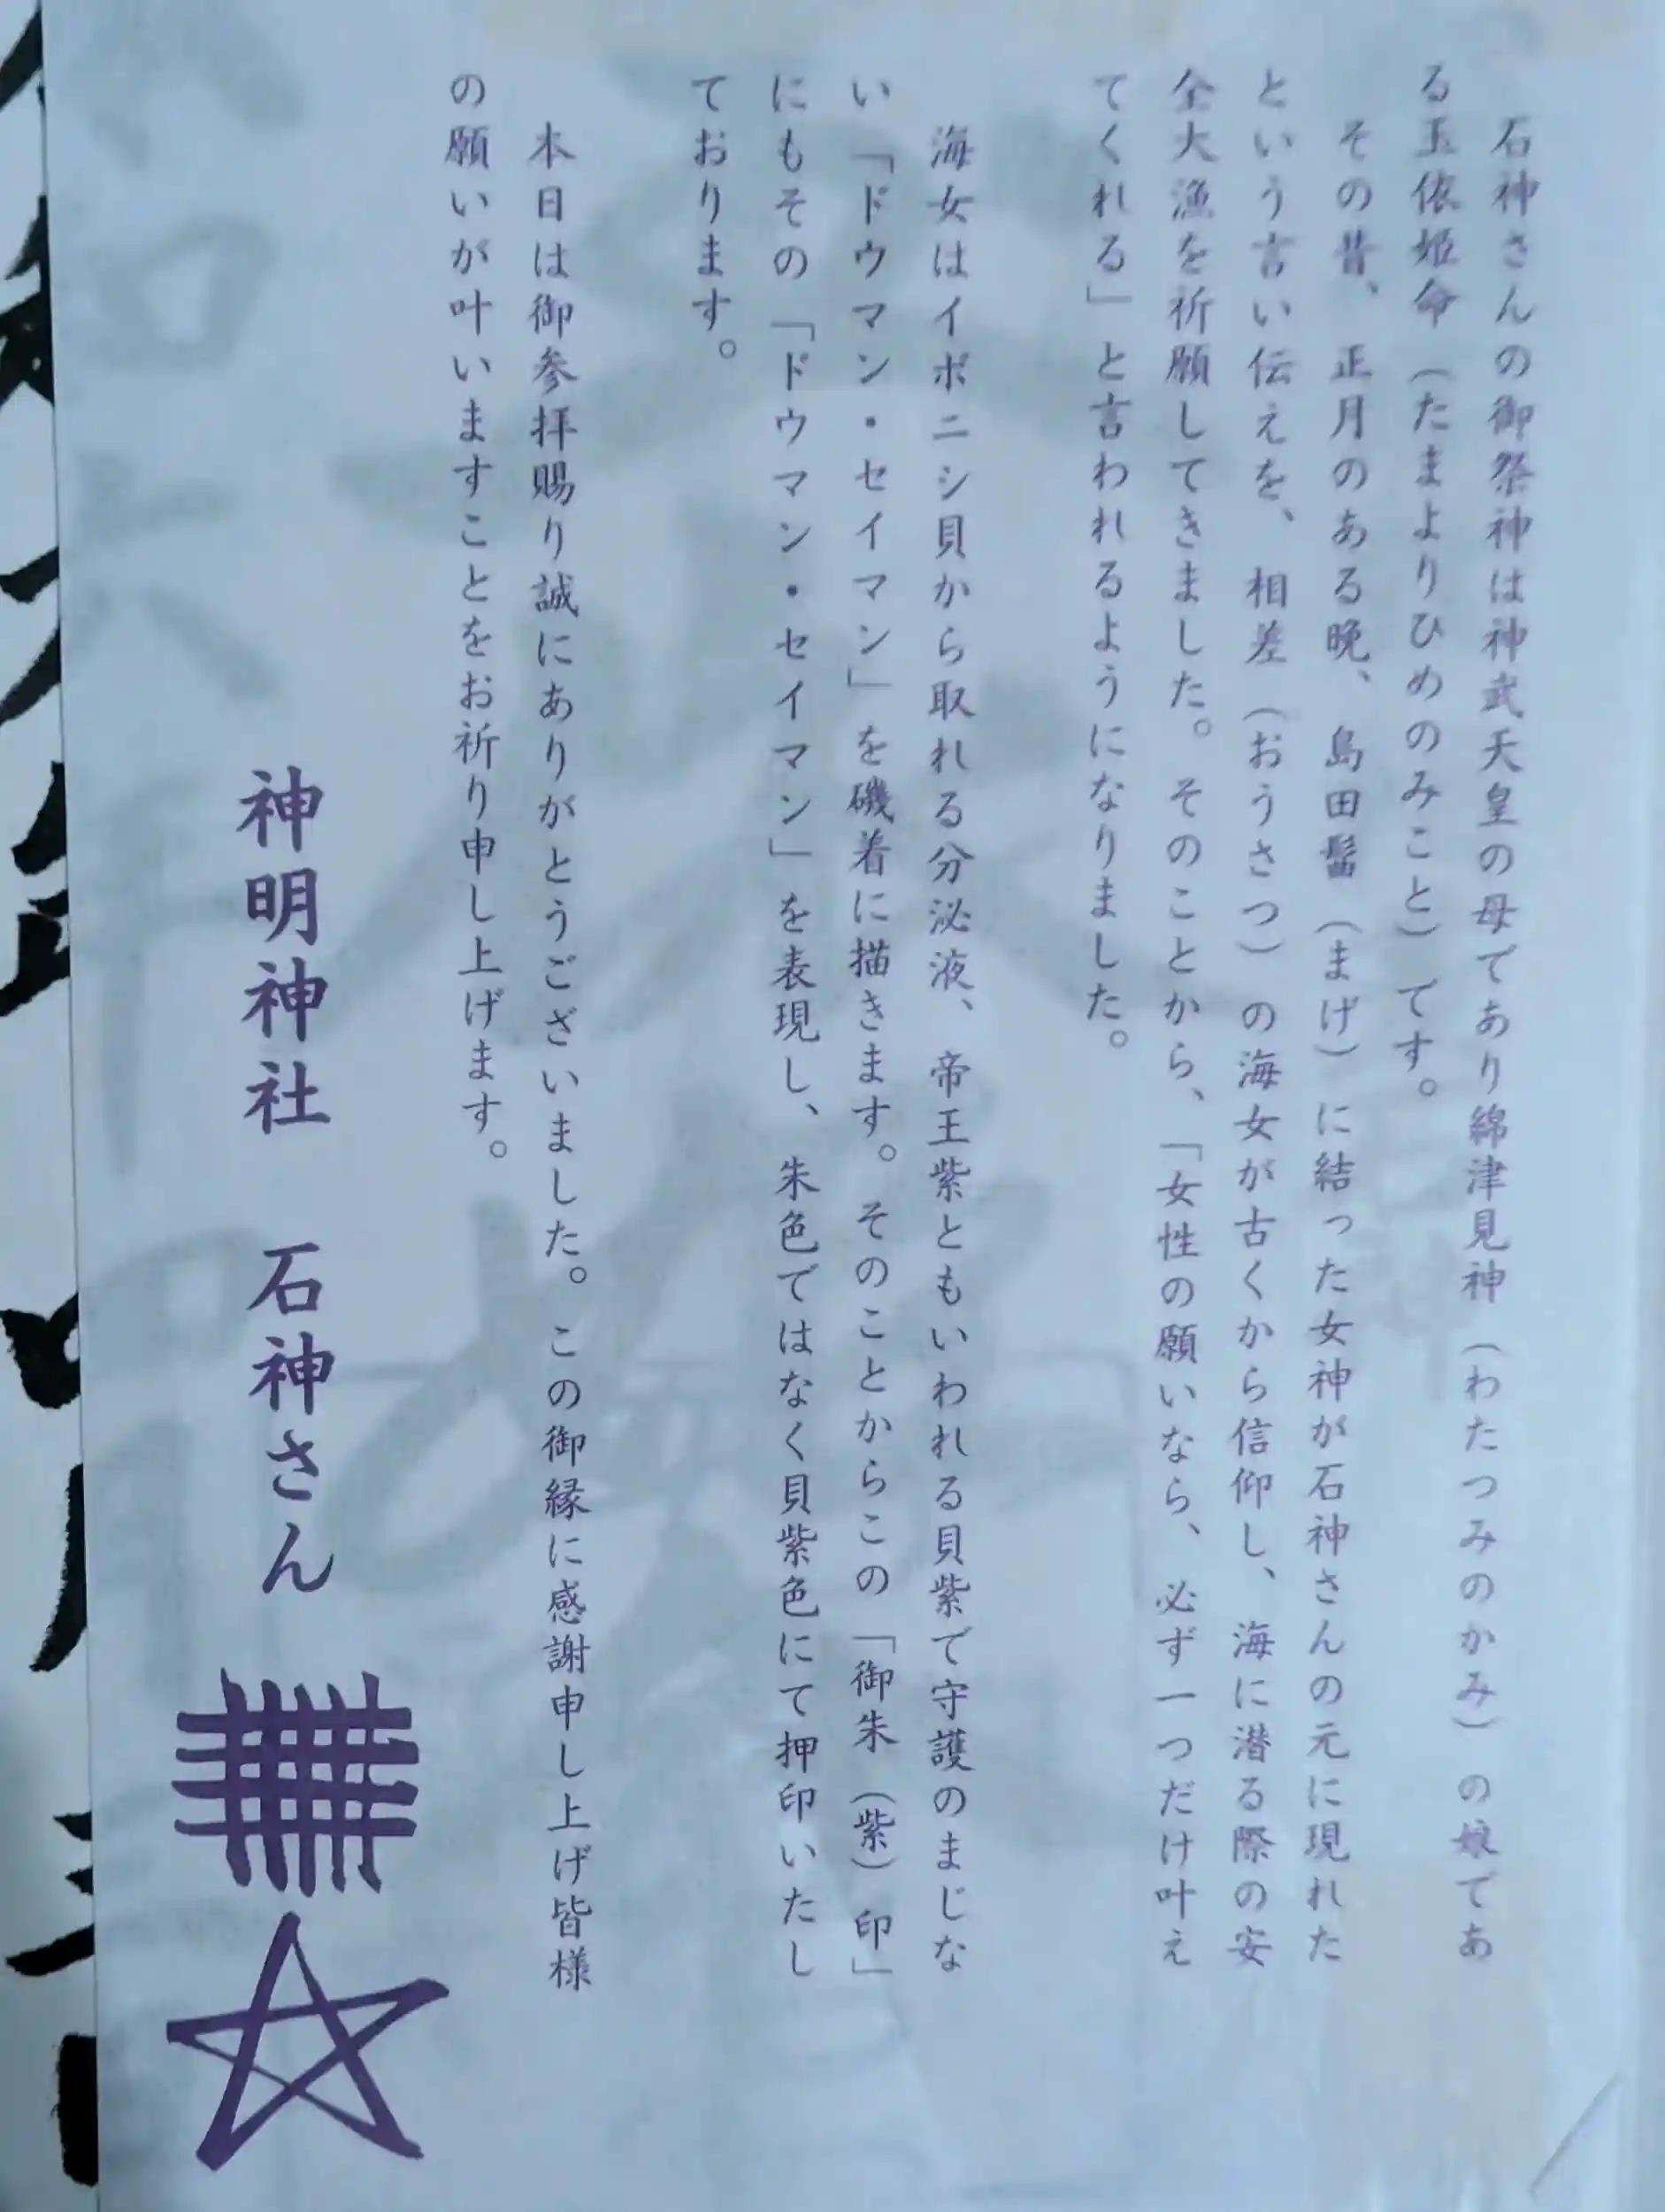 石神さんの御祭神は神武天皇の母であり綿津見神（わたつみのかみ）の娘であ
る玉依姫命（たまよりひめのみこと）です。
その昔、正月のある晩、島田髷（まげ）に結った女神が石神さんの元に現れた
という言い伝えを、相差（おうさつ）の海女が古くから信仰し、海に潜る際の安
全大漁を祈願してきました。そのことから、「女性の願いなら、必ず一つだけ叶え
てくれる」と言われるようになりました。
海女はイボニシ貝から取れる分泌液、帝王紫ともいわれる貝紫で守護のまじな
い「ドウマン・セイマン」を磯着に描きます。そのことからこの「御朱（紫）印」
にもその「ドウマン・セイマン」を表現し、朱色ではなく貝紫色にて押印いたし
ております。
本日は御参拝賜り誠にありがとうございました。この御縁に感謝申し上げ皆様
の願いが叶いますことをお祈り申し上げます。
神明神社　石神さん